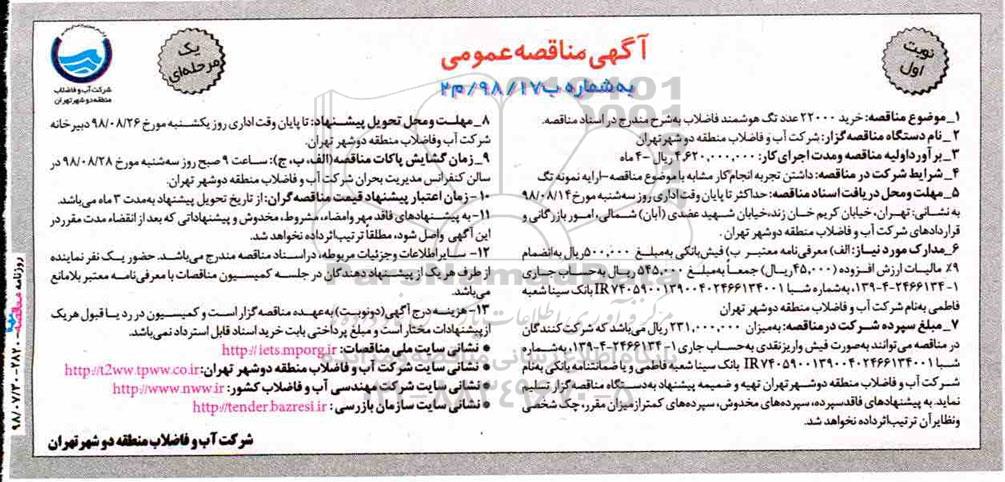 آگهی مناقصه عمومی
به شماره ب/۱۷/۹۸/م۲
نوبت
اول
یک
مرحله‌ای
شرکت آب و فاضلاب
منطقه دو شهر تهران
۱_ موضوع مناقصه: خرید ۲۲۰۰۰ عدد تگ هوشمند فاضلاب به‌شرح مندرج در اسناد مناقصه.
۲_ نام دستگاه مناقصه گزار: شرکت آب و فاضلاب منطقه دو شهر تهران
۳_ برآورد اولیه مناقصه و مدت اجرای کار: ۴,۶۲۰,۰۰۰,۰۰۰ ریال -۴ ماه
۴_ شرایط شرکت در مناقصه: داشتن تجربه انجام کار مشابه با موضوع مناقصه -ارایه نمونه تگ
۵_ مهلت و محل دریافت اسناد مناقصه: حداکثر تا پایان وقت اداری روز سه‌شنبه مورخ ۹۸/۰۸/۱۴
به نشانی: تهران، خیابان کریم خان زند، خیابان شهید عضدی (آبان) شمالی، امور بازرگانی و
قراردادهای شرکت آب و فاضلاب منطقه دو شهر تهران.
۶_ مدارک مورد نیاز: الف) معرفی‌نامه معتبر ب) فیش بانکی به‌مبلغ ۵۰۰,۰۰۰ ریال به‌انضمام
۹٪ مالیات ارزش افزوده (۴۵,۰۰۰ ریال) جمعاً به‌مبلغ ۵۴۵,۰۰۰ ریال به‌حساب جاری
۱-۲۴۶۶۱۳۴-۴-۱۳۹، به‌شماره شبا IR۷۴۰۵۹۰۰۱۳۹۰۰۴۰۲۴۶۶۱۳۴۰۰۱ بانک سینا شعبه
فاطمی به‌نام شرکت آب و فاضلاب منطقه دو شهر تهران
۷_ مبلغ سپرده شرکت در مناقصه: به‌میزان ۲۳۱,۰۰۰,۰۰۰ ریال می‌باشد که شرکت کنندگان
در مناقصه می‌توانند به‌صورت فیش واریز نقدی به‌حساب جاری ۱-۲۴۶۶۱۳۴-۴-۱۳۹، به‌شماره
شبا IR۷۴۰۵۹۰۰۱۳۹۰۰۴۰۲۴۶۶۱۳۴۰۰۱ بانک سینا شعبه فاطمی و یا ضمانتنامه بانکی به‌نام
شرکت آب و فاضلاب منطقه دو شهر تهران تهیه و ضمیمه پیشنهاد به‌دستگاه مناقصه گزار تسلیم
نماید. به پیشنهادهای فاقد سپرده، سپرده‌های مخدوش، سپرده‌های کمتر از میزان مقرر، چک شخصی
و نظایر آن ترتیب اثر داده نخواهد شد.
۸_ مهلت و محل تحویل پیشنهاد: تا پایان وقت اداری روز یکشنبه مورخ ۹۸/۰۸/۲۶ دبیرخانه
شرکت آب و فاضلاب منطقه دو شهر تهران.
۹_ زمان گشایش پاکات مناقصه (الف، ب، ج): ساعت ۹ صبح روز سه‌شنبه مورخ ۹۸/۰۸/۲۸ در
سالن کنفرانس مدیریت بحران شرکت آب و فاضلاب منطقه دو شهر تهران.
۱۰- زمان اعتبار پیشنهاد قیمت مناقصه گران: از تاریخ تحویل پیشنهاد به‌مدت ۳ ماه می‌باشد.
۱۱- به پیشنهادهای فاقد مهر و امضاء، مشروط، مخدوش و پیشنهاداتی که بعد از انقضاء مدت مقرر در
این آگهی واصل شود، مطلقاً ترتیب اثر داده نخواهد شد.
۱۲- سایر اطلاعات و جزئیات مربوطه، در اسناد مناقصه مندرج می‌باشد. حضور یک نفر نماینده
از طرف هریک از پیشنهاد دهندگان در جلسه کمیسیون مناقصات با معرفی‌نامه معتبر بلامانع
می‌باشد.
۱۳- هزینه درج آگهی (دو نوبت) به‌عهده مناقصه گزار است و کمیسیون در رد یا قبول هریک
از پیشنهادات مختار است و مبلغ پرداختی بابت خرید اسناد قابل استرداد نمی‌باشد.
● نشانی سایت ملی مناقصات: http://iets.mporg.ir
● نشانی سایت شرکت آب و فاضلاب منطقه دو شهر تهران: http://t2ww.tpww.co.ir
● نشانی سایت شرکت مهندسی آب و فاضلاب کشور: http://www.nww.ir
● نشانی سایت سازمان بازرسی: http://tender.bazresi.ir
شرکت آب و فاضلاب منطقه دو شهر تهران
روزنامه مناقصه ۲۸۲۰-۹۸/۰۷/۳۰
ParsNamadData
پایگاه اطلاع رسانی مناقصه و مزایده
۰۲۱-۸۸۳۴۹۶۷۰-۵